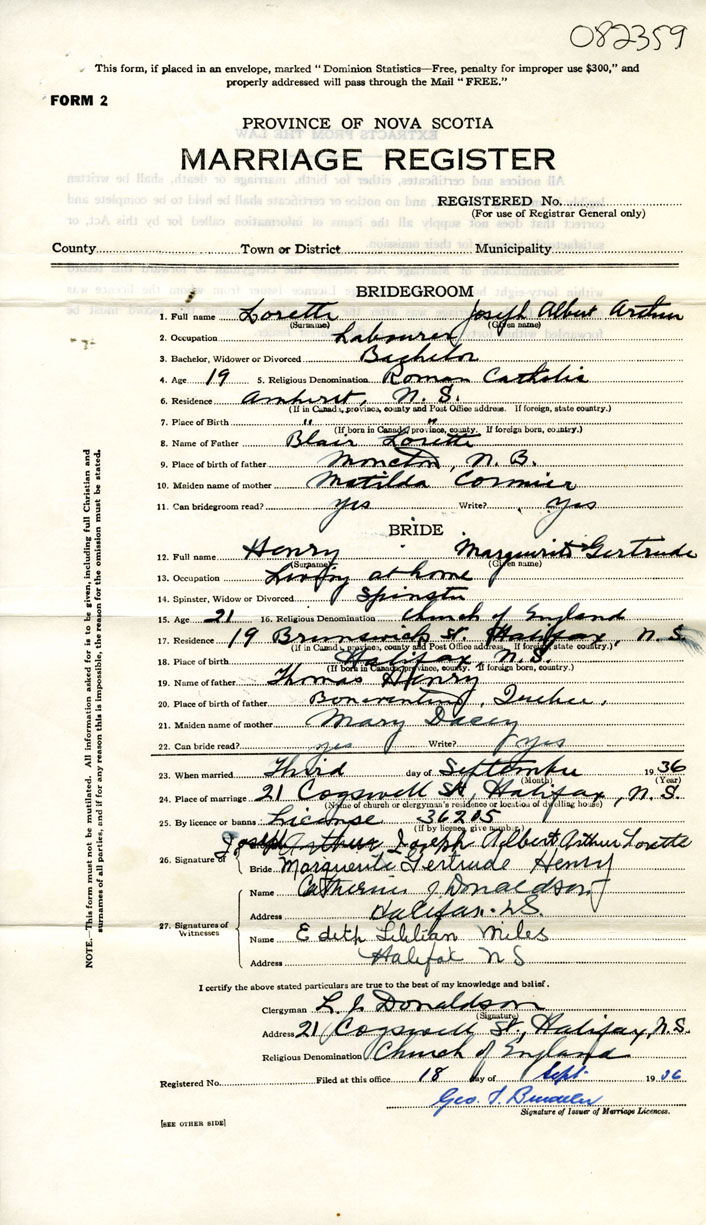 082359
This form, if placed in an envelope, marked "Dominion Statistics—Free, penalty for improper use $300," and
properly addressed will pass through the Mail "FREE."
FORM 2
PROVINCE OF NOVA SCOTIA
MARRIAGE REGISTER
REGISTERED No.
(For use of Registrar General only)
County Town or District Municipality
BRIDEGROOM
1. Full name Lorette Joseph Albert Arthur
(Surname) (Given name)
2. Occupation Labourer
3. Bachelor, Widower or Divorced Bachelor
4. Age 19 5. Religious Denomination Roman Catholic
6. Residence Amherst, N. S.
(If in Canada, province, county and Post Office address. If foreign, state country.)
7. Place of Birth " "
(If born in Canada, province, county. If foreign born, country.)
8. Name of Father Blair Lorette
9. Place of birth of father Moncton, N. B.
10. Maiden name of mother Matilda Cormier
11. Can bridegroom read? yes Write? yes
BRIDE
12. Full name Henry Marguerite Gertrude
(Surname) (Given name)
13. Occupation Living at home
14. Spinster, Widow or Divorced Spinster
15. Age 21 16. Religious Denomination Church of England
17. Residence 19 Brunswick St. Halifax, N. S.
(If in Canada, province, county and Post Office address. If foreign, state country.)
18. Place of birth Halifax, N. S.
(If born in Canada, province, county. If foreign born, country.)
19. Name of father Thomas Henry
20. Place of birth of father Bonaventure, Quebec,
21. Maiden name of mother Mary Dacey
22. Can bride read? yes Write? yes
23. When married Third day of September 1936
(Month) (Year)
24. Place of marriage 21 Cogswell St, Halifax, N. S.
(Name of church or clergyman's residence or location of dwelling house)
25. By licence or banns License 36205
(If by licence, give number)
Joseph Arthur Joseph Albert Arthur Lorette
26. Signature of Bride Marguerite Gertrude Henry
Name Catherine J Donaldson
Address Halifax. N.S.
27. Signatures of Witnesses
Name Edith Lillian Miles
Address Halifax NS
I certify the above stated particulars are true to the best of my knowledge and belief.
Clergyman L. J. Donaldson
(Signature)
Address 21 Cogswell St, Halifax, N.S.
Religious Denomination Church of England
Registered No. Filed at this office 18 day of Sept 1936
Geo. T.
Signature of Issuer of Marriage Licences.
[SEE OTHER SIDE]
NOTE.—This form must not be mutilated. All information asked for is to be given, including full Christian and
surnames of all parties, and if for any reason this is impossible, the reason for the omission must be stated.